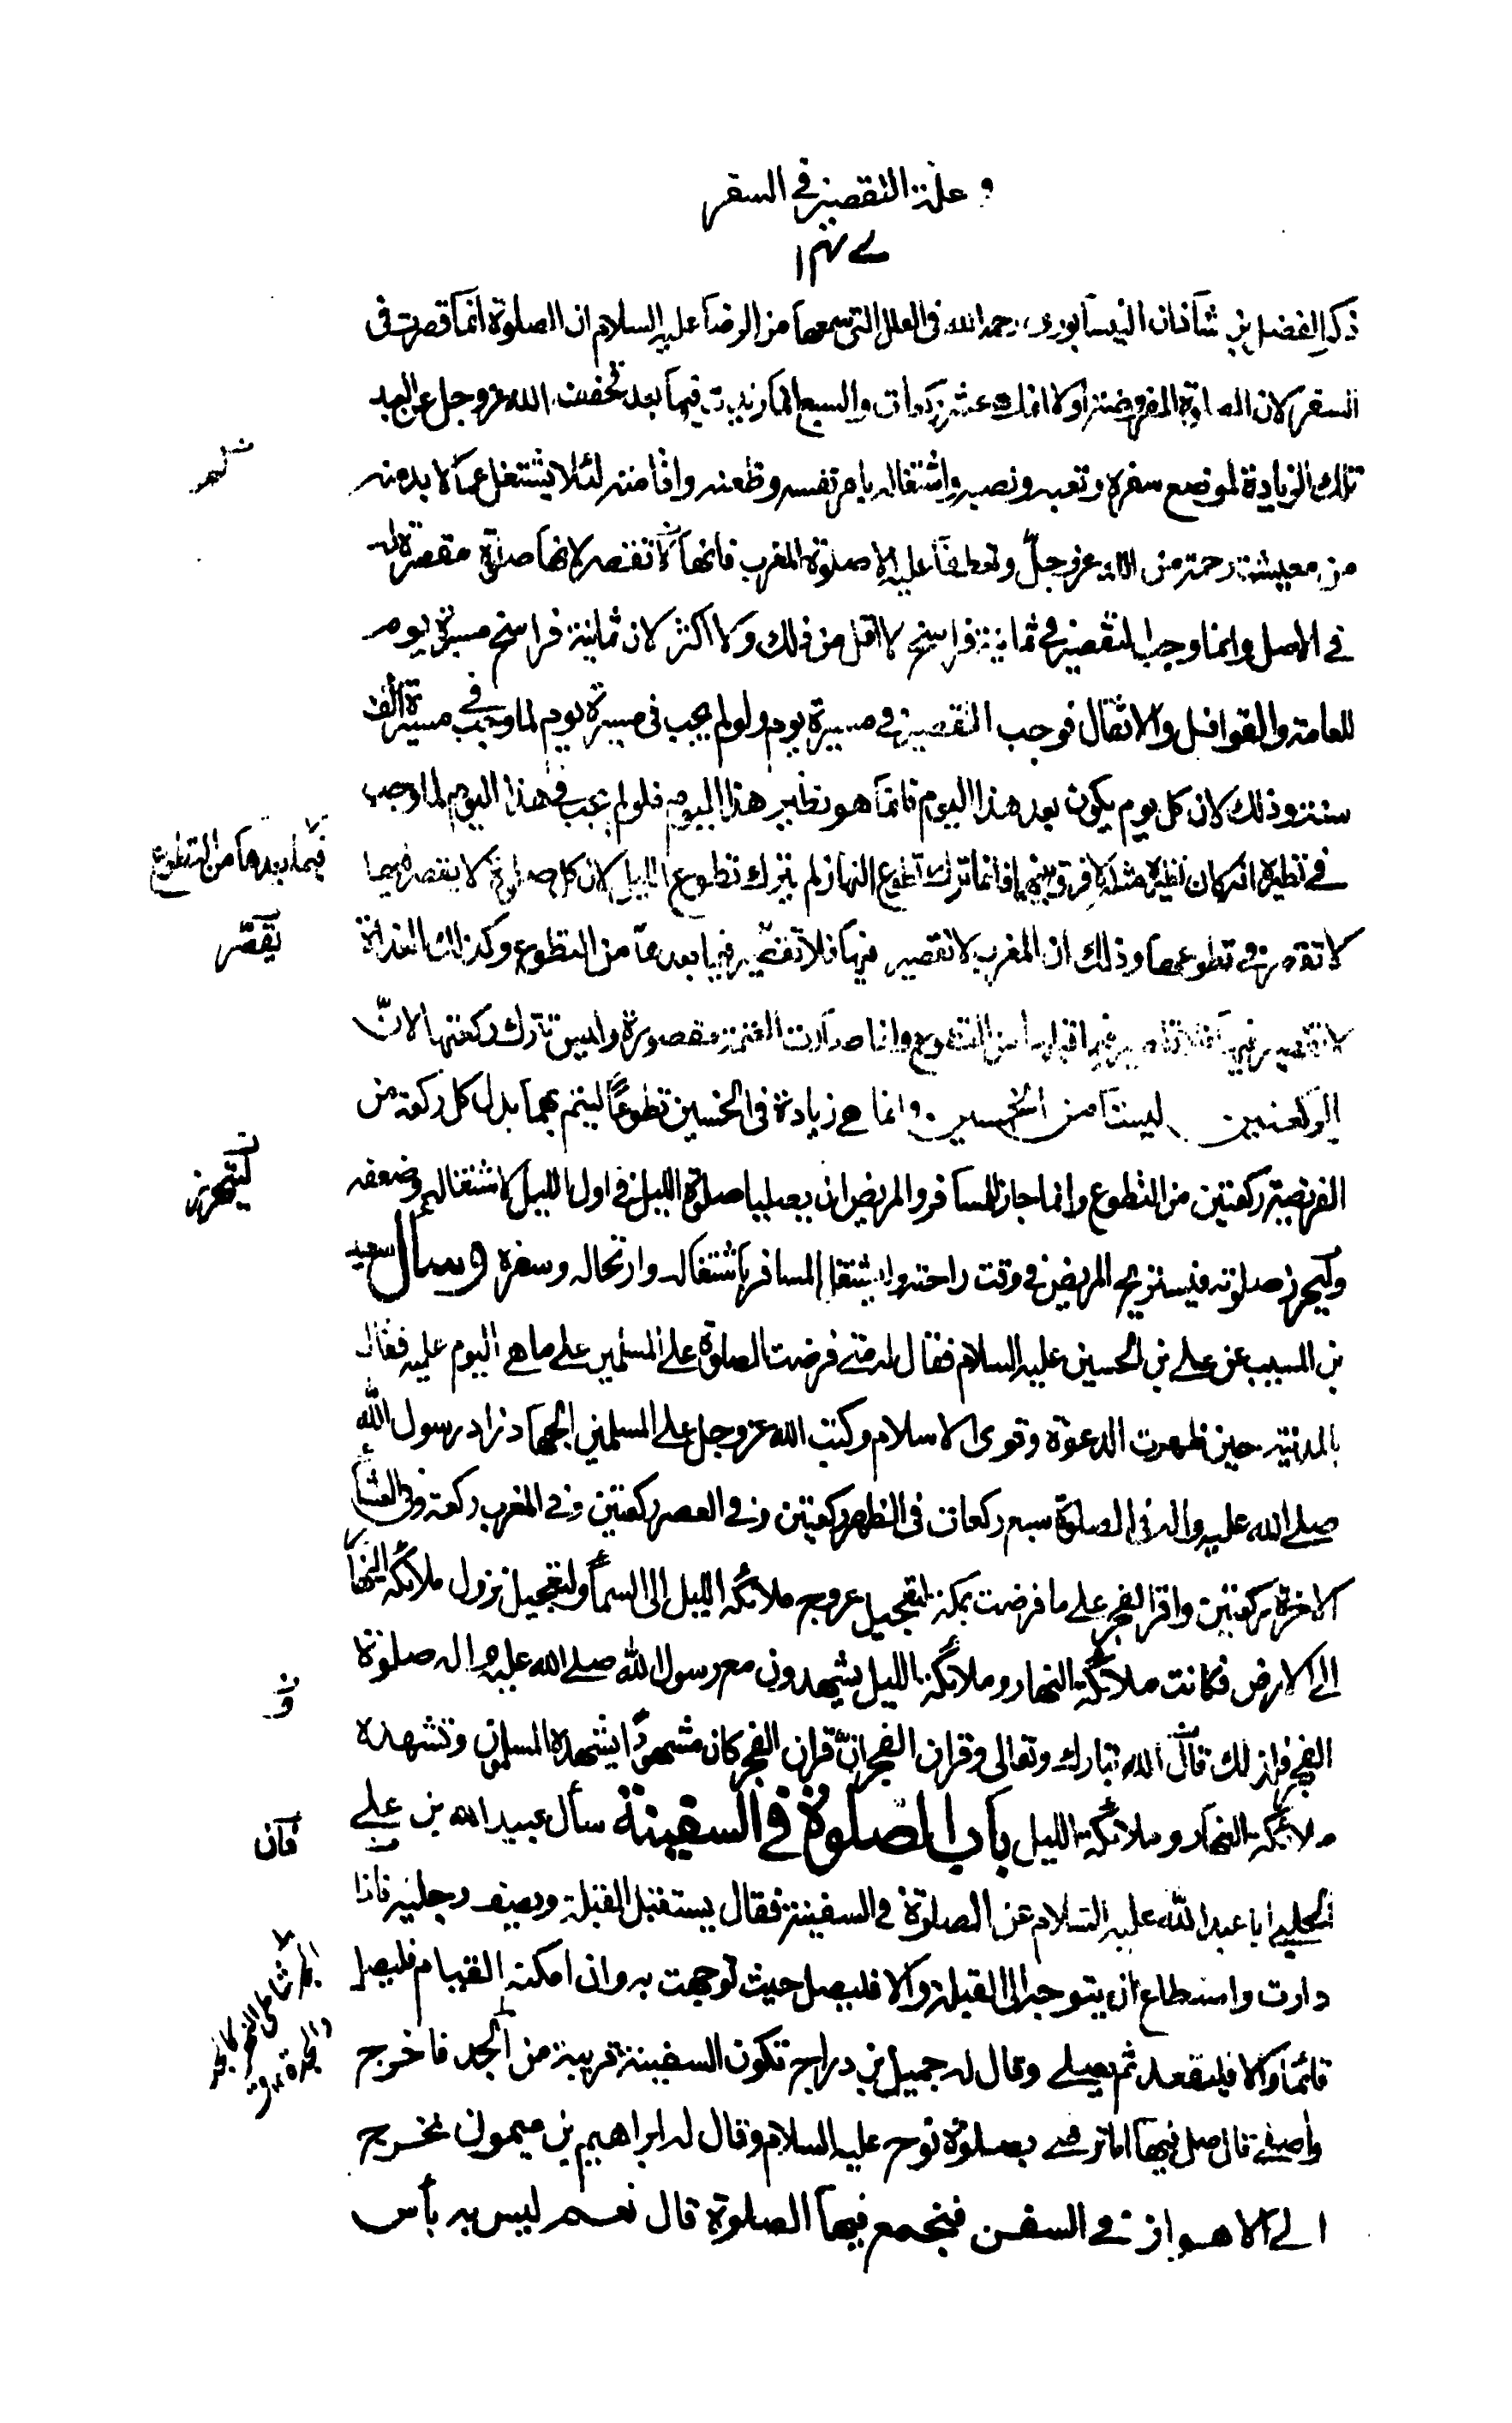 و علة التقصير في السفر
ذكر الفضل بن شاذان النيسابوري رحمه الله فى العلل التى سمعها من الرضا عليه السلام ان الصلوة انما قصرت فى
السفر لان الصلوة المفروضة اولا انما هي عشر ركعات والسبع انما زيدت فيها بعد فخفف الله عز وجل عن العبد
تلك الزيادة لموضع سفره وتعبه ونصبه واشتغاله بامر نفسه وظعنه واقامته لئلا يشتغل عما لا بد منه
من معيشته رحمة من الله عز وجل وتعطفا عليه الا صلوة المغرب فانها لا تقصر لانها صلوة مقصرة
في الاصل وانما وجب التقصير في ثمانية فراسخ لا اقل من ذلك ولا اكثر لان ثمانية فراسخ مسيرة يوم
للعامة والقوافل والاثقال فوجب التقصير في مسيرة يوم ولو لم يجب فى مسيرة يوم لما وجب في مسيرة الف
سنة وذلك لان كل يوم يكون بعد هذا اليوم فانما هو نظير هذا اليوم فلو لم يجب فى هذا اليوم لما وجب
في نظيره اذ كان نظيره مثله لا فرق بينهما وانما ترك تطوع النهار ولم يترك تطوع الليل لان كل صلوة لا يقصر فيها
فيما بعدها من التطوع
لا تقصر في تطوعها وذلك ان المغرب لا تقصير فيها فلا تقصير فيما بعدها من التطوع وكذلك الغداة
يقصر
لا تقصير فيها فلا تقصير فيما قبلها من التطوع وانما صارت العتمة مقصورة وليس تترك ركعتيها لان
الركعتين ليستا من الخمسين وانما هي زيادة فى الخمسين تطوعا ليتم بهما بدل كل ركعة من
الفريضة ركعتين من التطوع وانما جاز للمسافر والمريض ان يصليا صلوة الليل في اول الليل لاشتغاله وضعفه
وليحرز صلوته فيستريح المريض في وقت راحته وليشتغل المسافر باشتغاله وارتحاله وسفره وسأل سعيد
بن المسيب عن علي بن الحسين عليه السلام فقال له متى فرضت الصلوة على المسلمين على ما هي اليوم عليه فقال
بالمدينة حين ظهرت الدعوة وقوى الاسلام وكتب الله عز وجل على المسلمين الجهاد زاد رسول الله
صلى الله عليه واله فى الصلوة سبع ركعات فى الظهر ركعتين وفي العصر ركعتين وفي المغرب ركعة وفى العشاء
الاخرة ركعتين واقر الفجر على ما فرضت بمكة لتعجيل عروج ملائكة الليل الى السماء ولتعجيل نزول ملائكة النهار
الى الارض فكانت ملائكة النهار وملائكة الليل يشهدون مع رسول الله صلى الله عليه واله صلوة
الفجر فلذلك قال الله تبارك وتعالى وقران الفجر ان قران الفجر كان مشهودا يشهده المسلمون وتشهده
ملائكة النهار وملائكة الليل باب الصلوة في السفينة سأل عبيد الله بن علي
فان
الحلبي ابا عبد الله عليه السلام عن الصلوة في السفينة فقال يستقبل القبلة ويصف رجليه فاذا
دارت واستطاع ان يتوجه الى القبلة والا فليصل حيث توجهت به وان امكنه القيام فليصل
قائما والا فليقعد ثم يصلي وقال له جميل بن دراج تكون السفينة قريبة من الجد فاخرج
واصلي قال صل فيها اما ترضى بصلوة نوح عليه السلام وقال له ابراهيم بن ميمون نخرج
الى الاهواز في السفن فنجمع فيها الصلوة قال نعم ليس به بأس